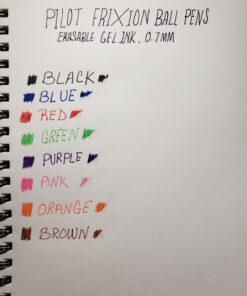 PILOT FRIXION BALL PENS
ERASABLE GEL INK, 0.7MM
BLACK
BLUE
RED
GREEN
PURPLE
PINK
ORANGE
BROWN